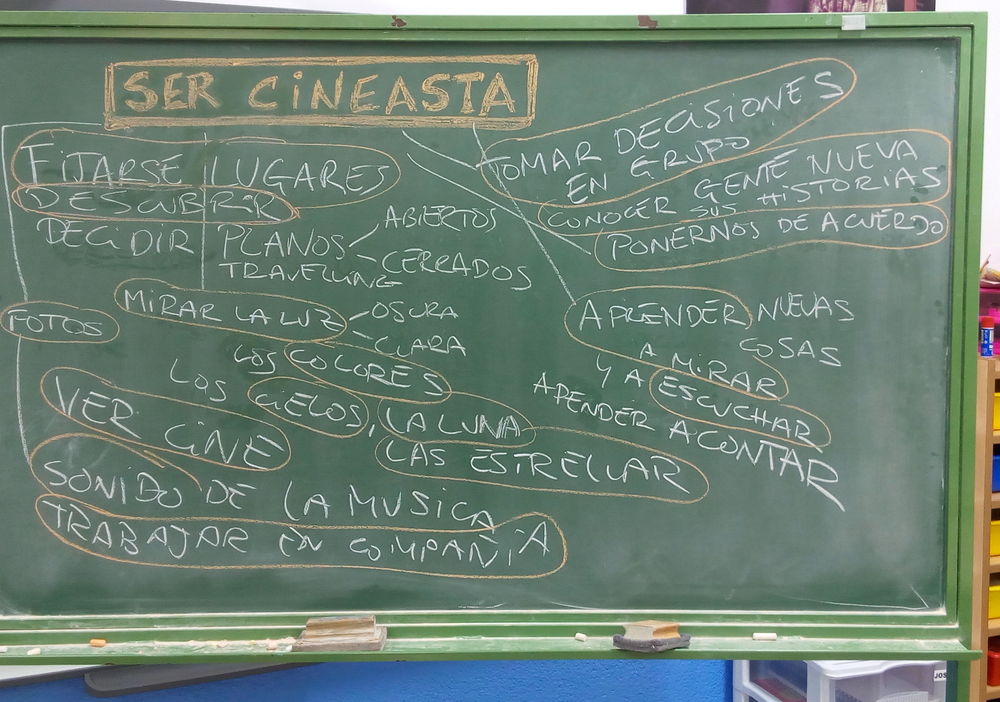 SER CINEASTA
FIJARSE LUGARES
DESCUBRIR
DECIDIR PLANOS
ABIERTOS
CERRADOS
TRAVELLING
MIRAR LA LUZ
OSCURA
CLARA
FOTOS
LOS COLORES
LOS CIELOS, LA LUNA
LAS ESTRELLAR
VER CINE
SONIDO DE LA MUSICA
TRABAJAR EN COMPAÑIA
TOMAR DECISIONES
EN GRUPO
CONOCER GENTE NUEVA
SUS HISTORIAS
PONERNOS DE ACUERDO
APRENDER NUEVAS
COSAS
A MIRAR
Y A ESCUCHAR
APENDER A CONTAR
JOS